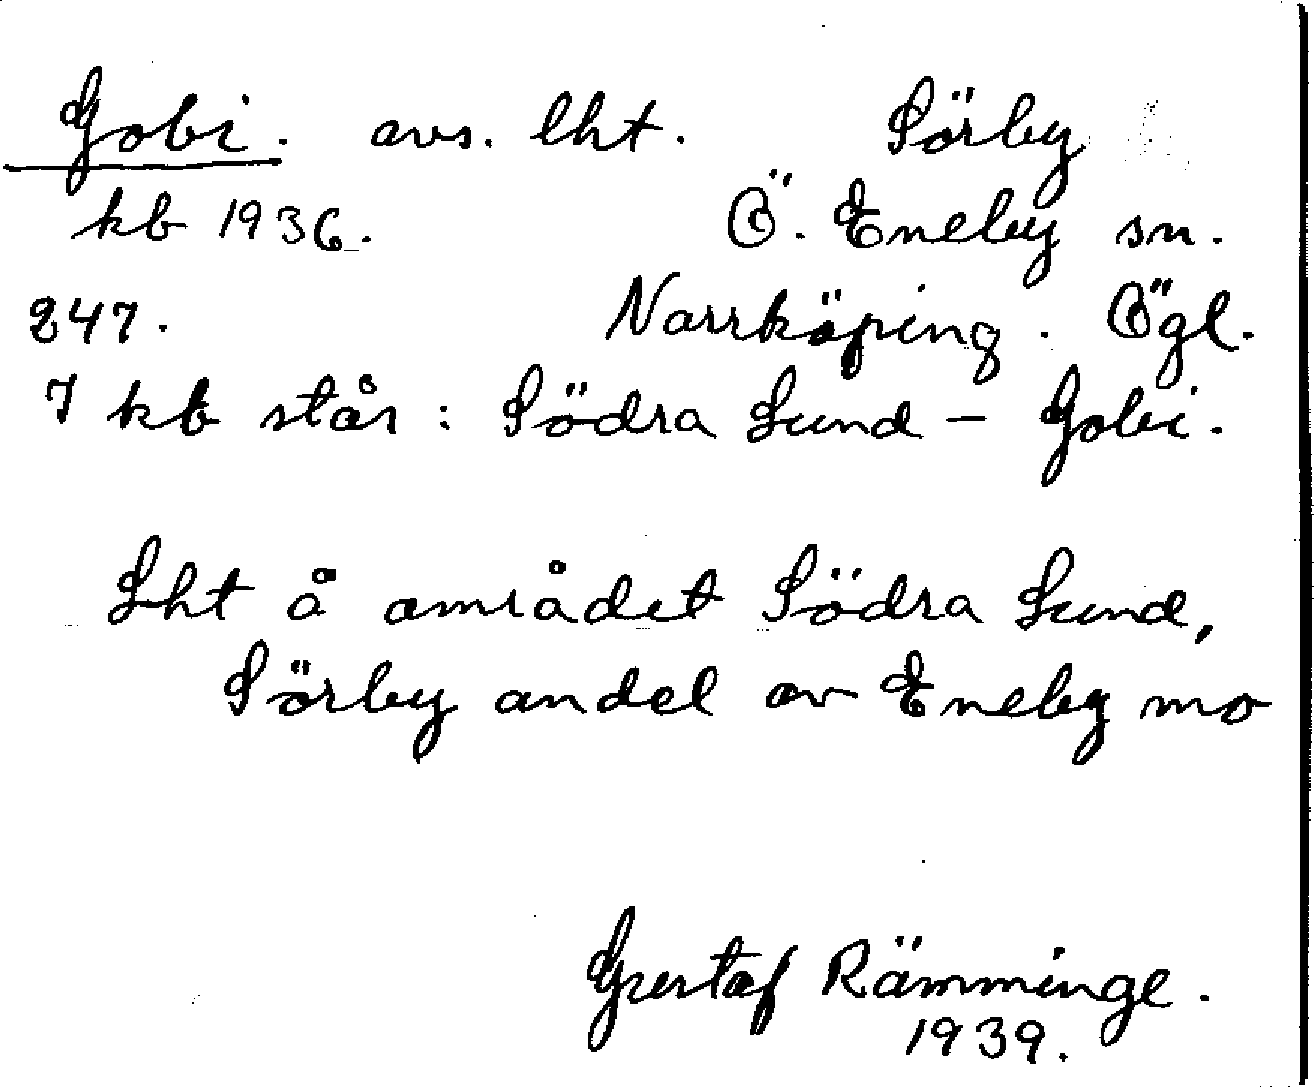 Gobi. avs. lht. Sörby
kb 1936. Ö. Eneby sn.
247. Norrköping. Ögl.
I kb står: Södra Lund - Gobi.
Lht å området Södra Lund,
Sörby andel av Eneby mo
Gustaf Rämminge.
1939.